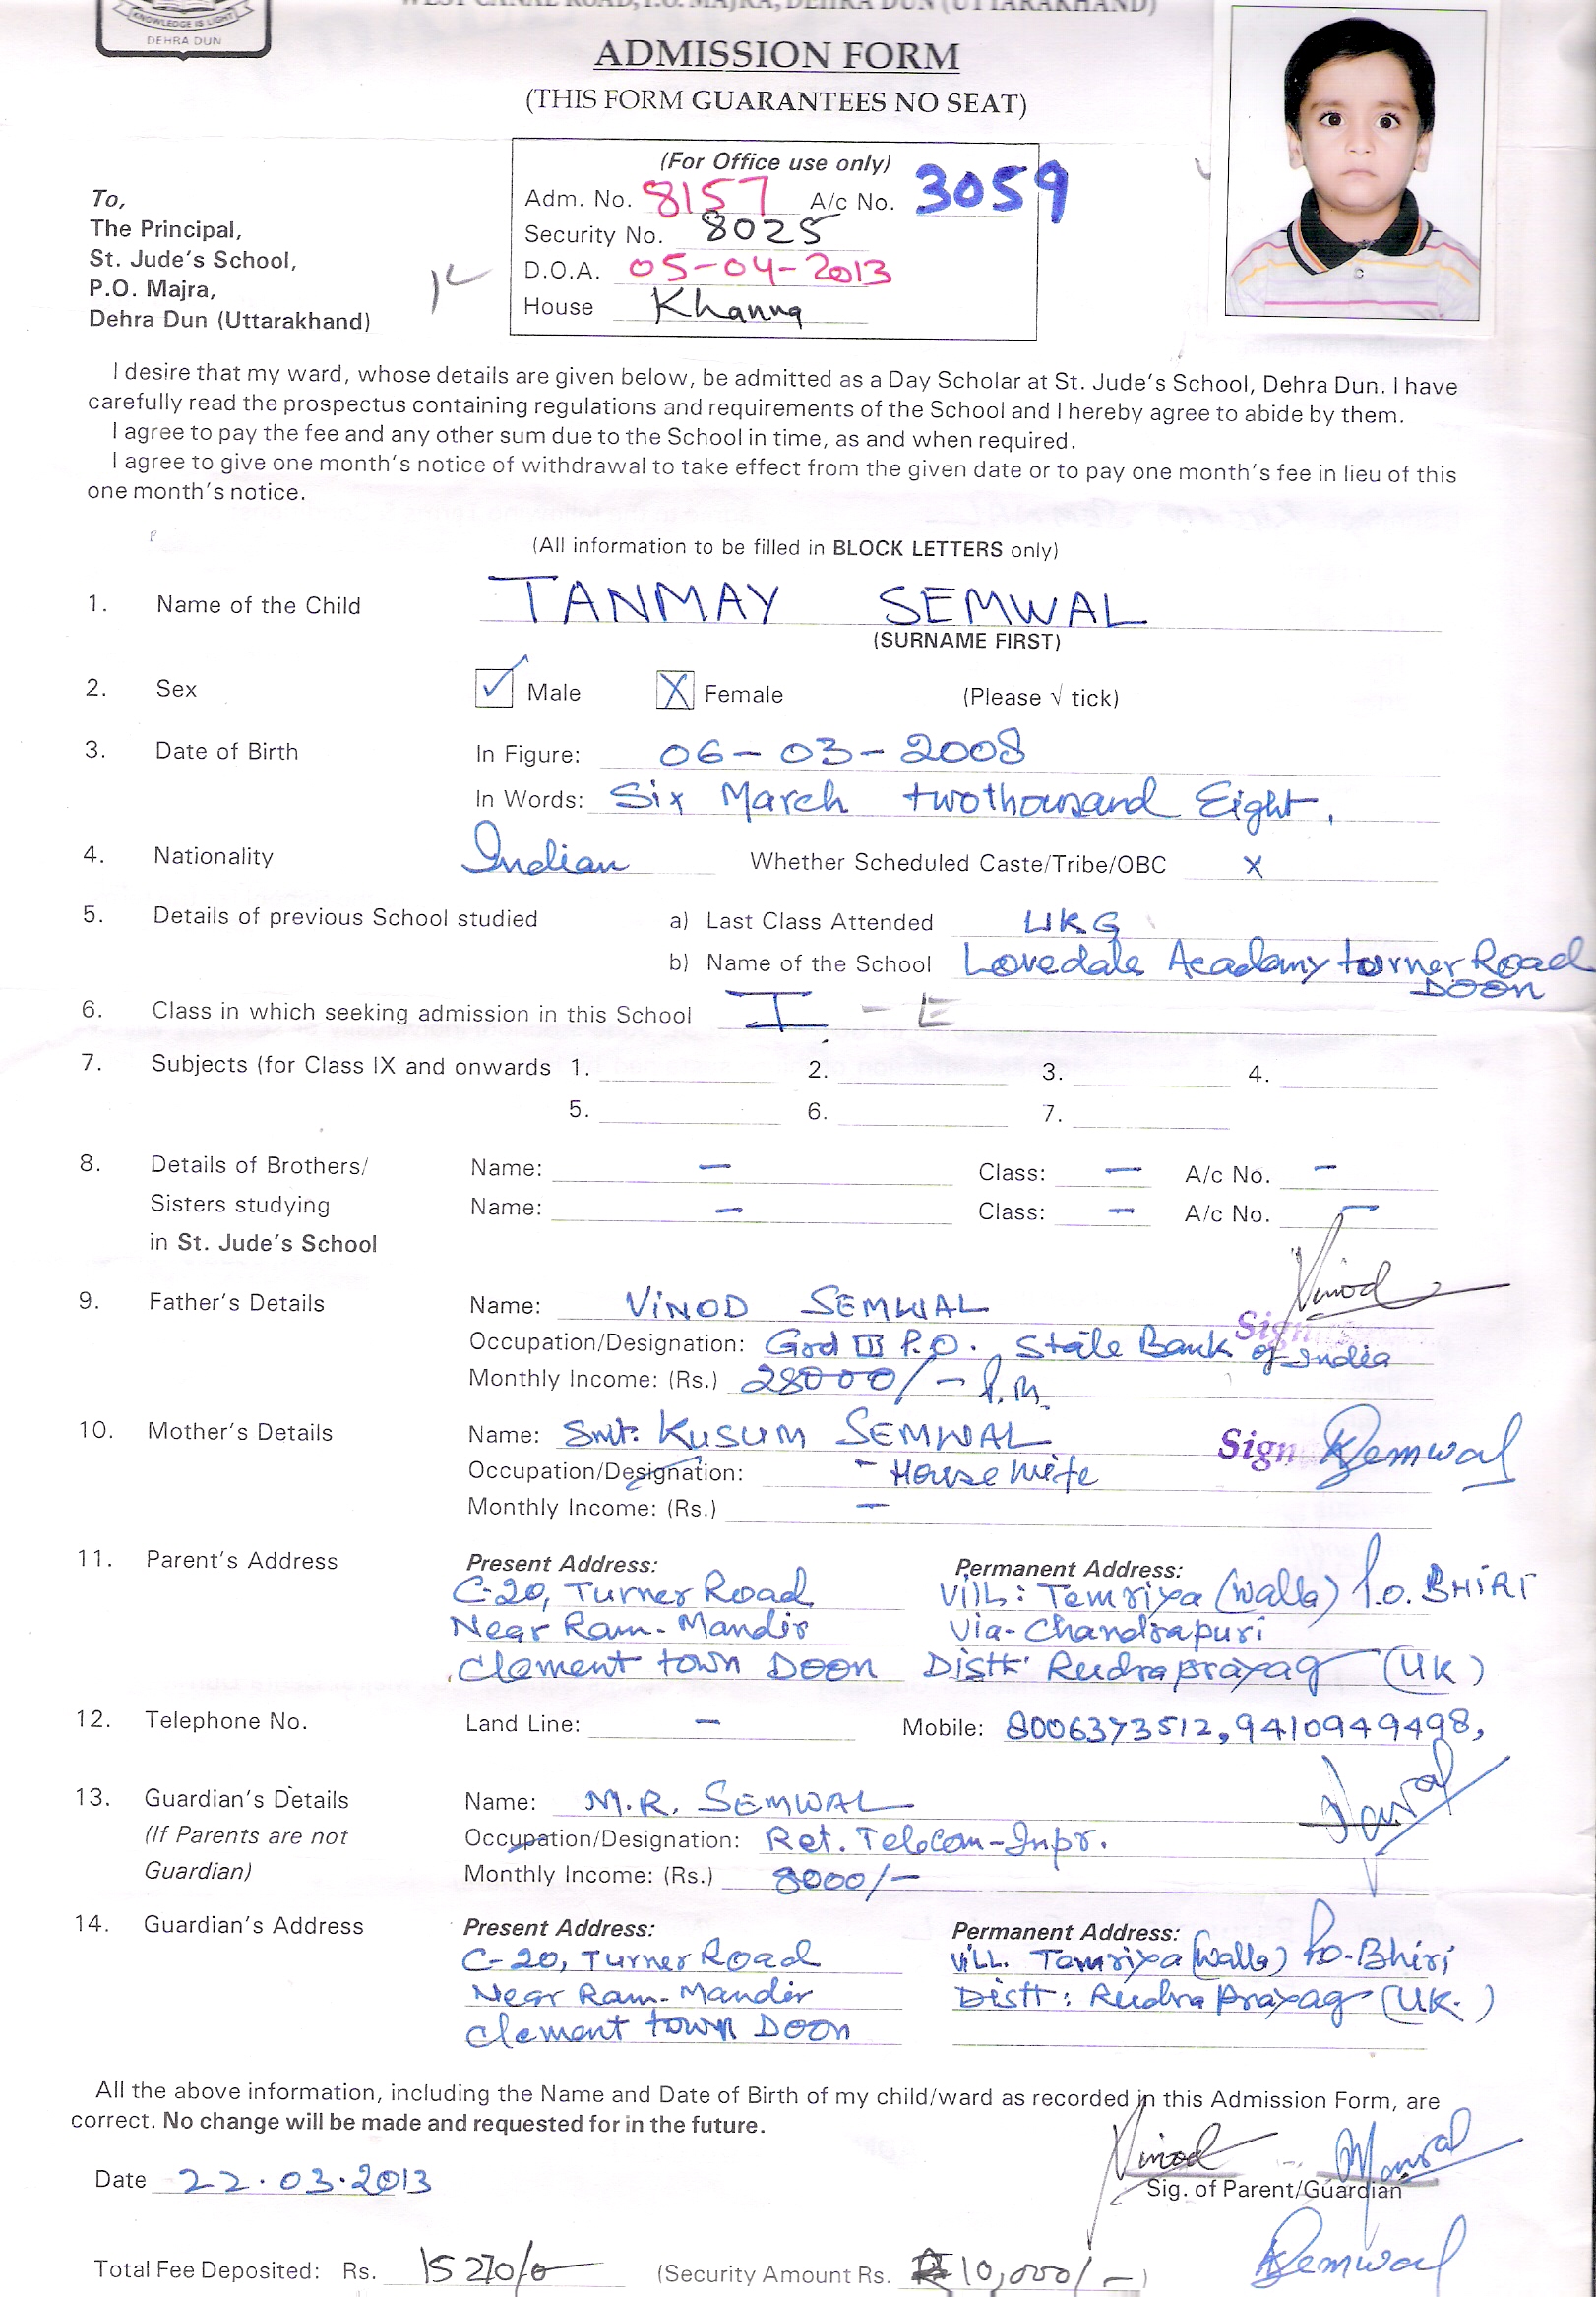 KNOWLEDGE IS LIGHT
DEHRA DUN
WEST CANAL ROAD, P.O. MAJRA, DEHRA DUN (UTTARAKHAND)
ADMISSION FORM
(THIS FORM GUARANTEES NO SEAT)
(For Office use only)
Adm. No. 8157 A/c No. 3059
Security No. 8025
D.O.A. 05-04-2013
House Khanna
To,
The Principal,
St. Jude's School,
P.O. Majra,
Dehra Dun (Uttarakhand)
I desire that my ward, whose details are given below, be admitted as a Day Scholar at St. Jude's School, Dehra Dun. I have
carefully read the prospectus containing regulations and requirements of the School and I hereby agree to abide by them.
I agree to pay the fee and any other sum due to the School in time, as and when required.
I agree to give one month's notice of withdrawal to take effect from the given date or to pay one month's fee in lieu of this
one month's notice.
(All information to be filled in BLOCK LETTERS only)
1. Name of the Child TANMAY SEMWAL
(SURNAME FIRST)
2. Sex ✓ Male X Female (Please √ tick)
3. Date of Birth In Figure: 06-03-2008
In Words: Six March twothousand Eight.
4. Nationality Indian Whether Scheduled Caste/Tribe/OBC x
5. Details of previous School studied a) Last Class Attended UKG
b) Name of the School Lovedale Acadamy turner Road
Doon
6. Class in which seeking admission in this School I - E
7. Subjects (for Class IX and onwards 1. 2. 3. 4.
5. 6. 7.
8. Details of Brothers/ Name: — Class: — A/c No. —
Sisters studying Name: — Class: — A/c No. —
in St. Jude's School
Vinod
9. Father's Details Name: VINOD SEMWAL
Sign
Occupation/Designation: Grd III P.O. State Bank of India
Monthly Income: (Rs.) 28000/- P.M.
10. Mother's Details Name: Smt. KUSUM SEMWAL Sign KSemwal
Occupation/Designation: - House Wife
Monthly Income: (Rs.) —
11. Parent's Address Present Address: Permanent Address:
C-20, Turner Road Vill: Temriya (Walla) P.O. BHIRI
Near Ram-Mandir Via-Chandrapuri
Clement town Doon Distt: Rudraprayag (UK)
12. Telephone No. Land Line: — Mobile: 8006373512, 9410949498,
13. Guardian's Details Name: M.R. SEMWAL
(If Parents are not Occupation/Designation: Ret. Telecom-Inpr.
Guardian) Monthly Income: (Rs.) 8000/-
14. Guardian's Address Present Address: Permanent Address:
C-20, Turner Road Vill. Temriya (Walla) PO-Bhiri
Near Ram-Mandir Distt: Rudraprayag (UK.)
Clement town Doon
All the above information, including the Name and Date of Birth of my child/ward as recorded in this Admission Form, are
correct. No change will be made and requested for in the future.
Vinod
Date 22.03.2013
Sig. of Parent/Guardian
Total Fee Deposited: Rs. 15270/0 (Security Amount Rs. 10,000/-)
KSemwal